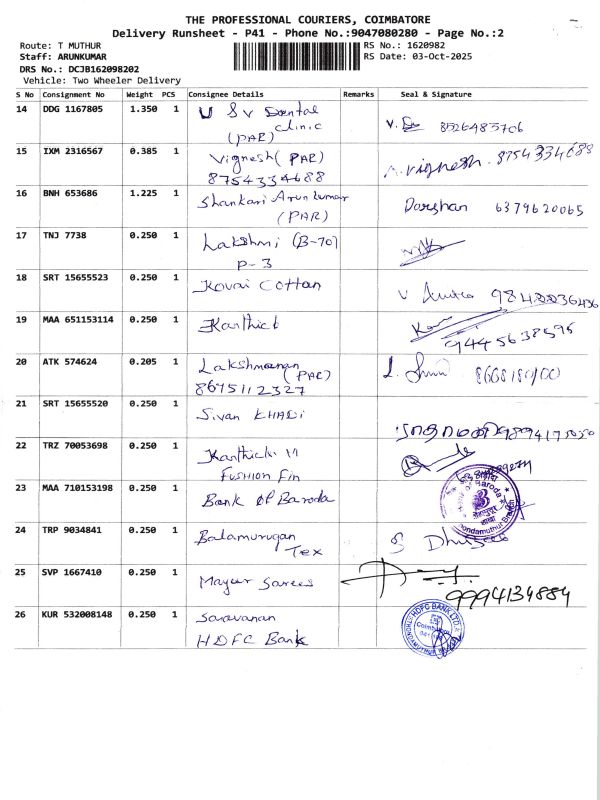 THE PROFESSIONAL COURIERS, COIMBATORE
Delivery Runsheet - P41 - Phone No.:9047080280 - Page No.:2
Route: T MUTHUR
RS No.: 1620982
Staff: ARUNKUMAR
RS Date: 03-Oct-2025
DRS No.: DCJB162098202
Vehicle: Two Wheeler Delivery
S No Consignment No Weight PCS Consignee Details Remarks Seal & Signature
14 DDG 1167805 1.350 1 U S V Dental
Clinic
(PAR)
8526483706
15 IXM 2316567 0.385 1 Vignesh (PAR)
8754334688
Vignesh. 8754334688
16 BNH 653686 1.225 1 Shankari Arun kumar
(PAR)
Darshan 6379620065
17 TNJ 7738 0.250 1 Lakshmi (B-70)
P-3
18 SRT 15655523 0.250 1 Kovai Cottan
19 MAA 651153114 0.250 1 Karthick
9445638595
20 ATK 574624 0.205 1 Lakshmanan
(PAR)
8675112327
21 SRT 15655520 0.250 1 Sivan KHADI
22 TRZ 70053698 0.250 1 Karthick M
Fushion Fin
23 MAA 710153198 0.250 1 Bank Of Baroda
24 TRP 9034841 0.250 1 Balamurugan
Tex
25 SVP 1667410 0.250 1 Mayur Sarees
9994134884
26 KUR 532008148 0.250 1 Saravanan
HDFC Bank
HDFC BANK LTD
Coimbatore